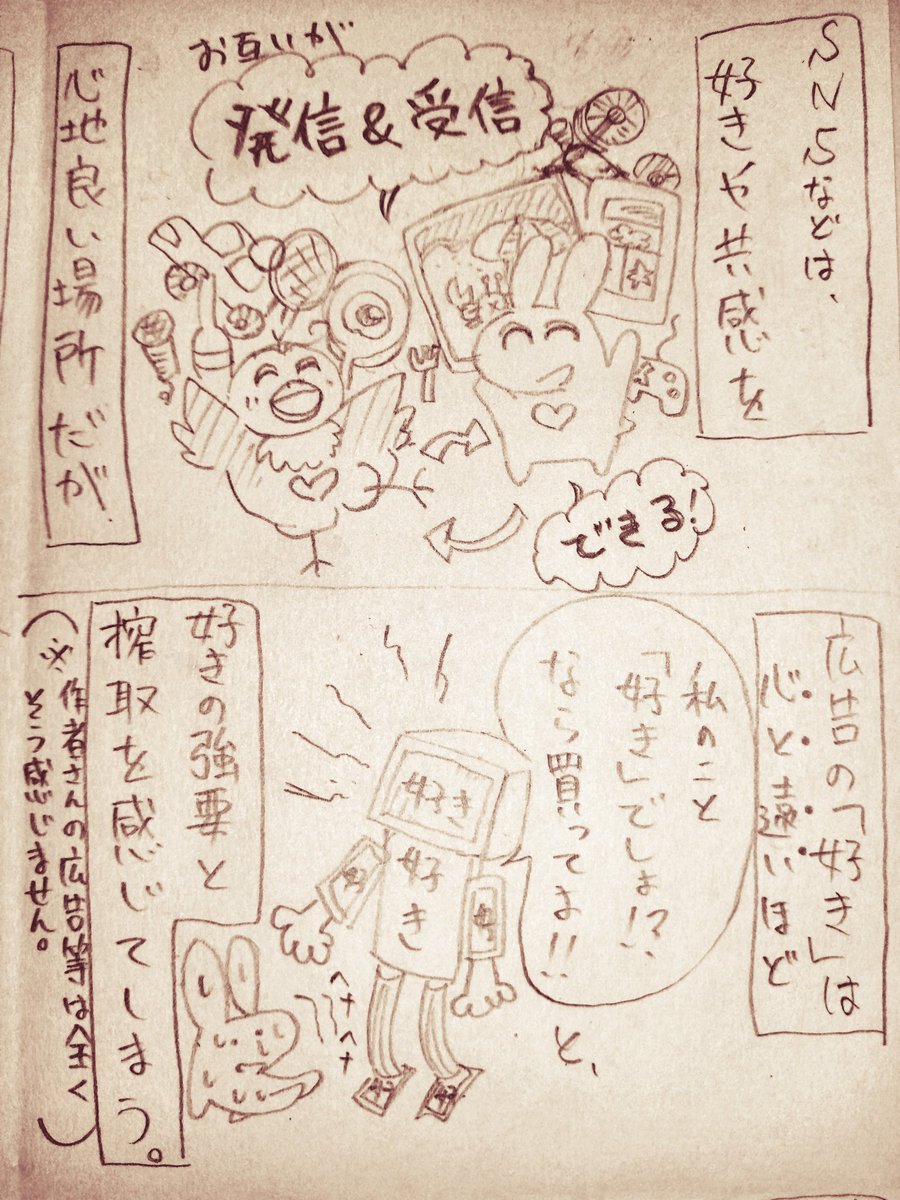 SNSなどは、
好きや共感を
お互いが
発信&受信
できる!
心地良い場所だが
広告の「好き」は
心と遠いほど
私のこと
「好き」でしょ!?
なら買ってよ!!
と、
好き
好き
好
好
好き
好き
ヘナヘナ
好きの強要と
搾取を感じてしまう。
(※作者さんの広告等は全く
そう感じません。)